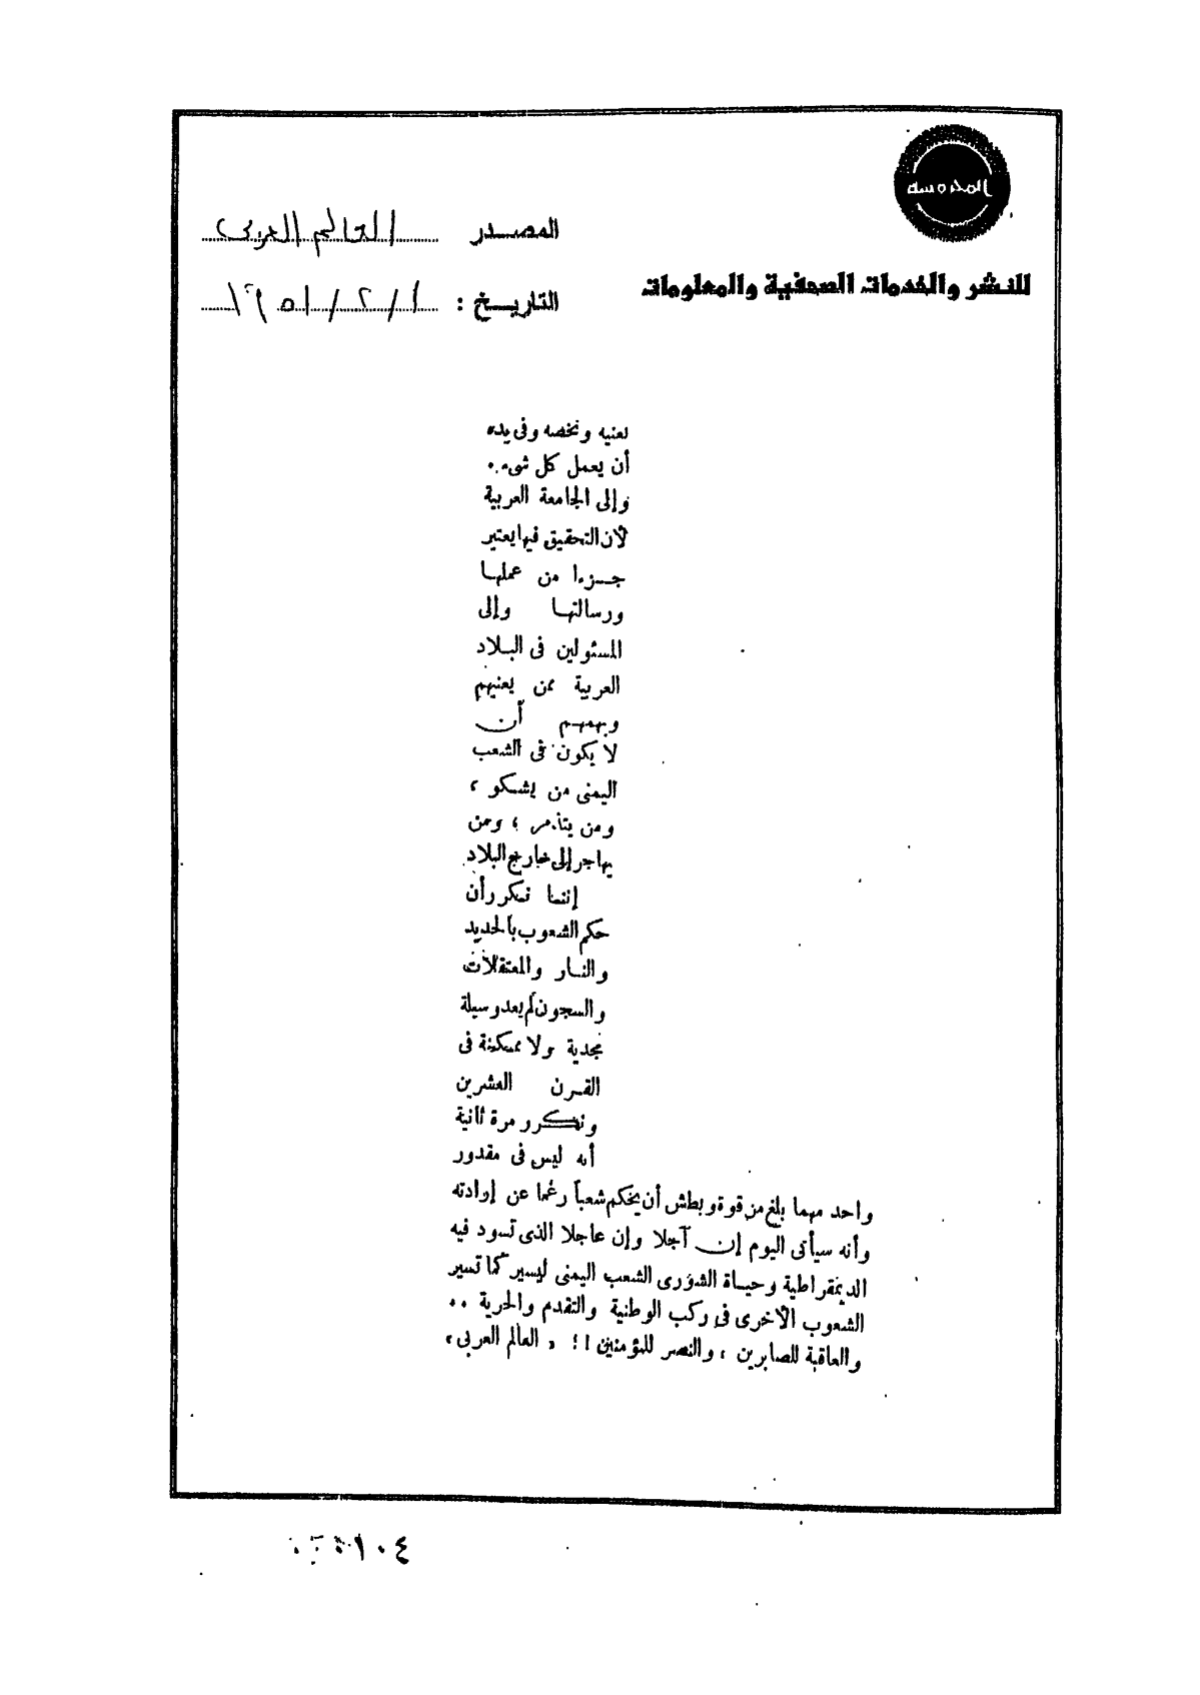 المحروسة
للنشر والخدمات الصحفية والمعلومات
المصدر العالم العربى
التاريخ : ١ / ٢ / ١٩٥١
تعنيه وتخصه وفى يده
أن يعمل كل شىء..
وإلى الجامعة العربية
لأن التحقيق فيها يعتبر
جزءا من عملها
ورسالتها وإلى
المسئولين فى البلاد
العربية ممن يعنيهم
ويهمهم أن
لا يكون فى الشعب
اليمنى من يشكو ،
ومن يتذمر ، ومن
يهاجر إلى خارج البلاد
إننا نكرر أن
حكم الشعوب بالحديد
والنار والمعتقلات
والسجون لم يعد وسيلة
مجدية ولا ممكنة فى
القرن العشرين
ونكرر مرة ثانية
أنه ليس فى مقدور
واحد مهما بلغ من قوة وبطش أن يحكم شعباً رغما عن إرادته
وأنه سيأتى اليوم إن آجلا وإن عاجلا الذى تسود فيه
الديمقراطية وحياة الشورى الشعب اليمنى ليسير كما تسير
الشعوب الأخرى فى ركب الوطنية والتقدم والحرية ..
والعاقبة للصابرين ، والنصر للمؤمنين !! « العالم العربى »
١٠٤